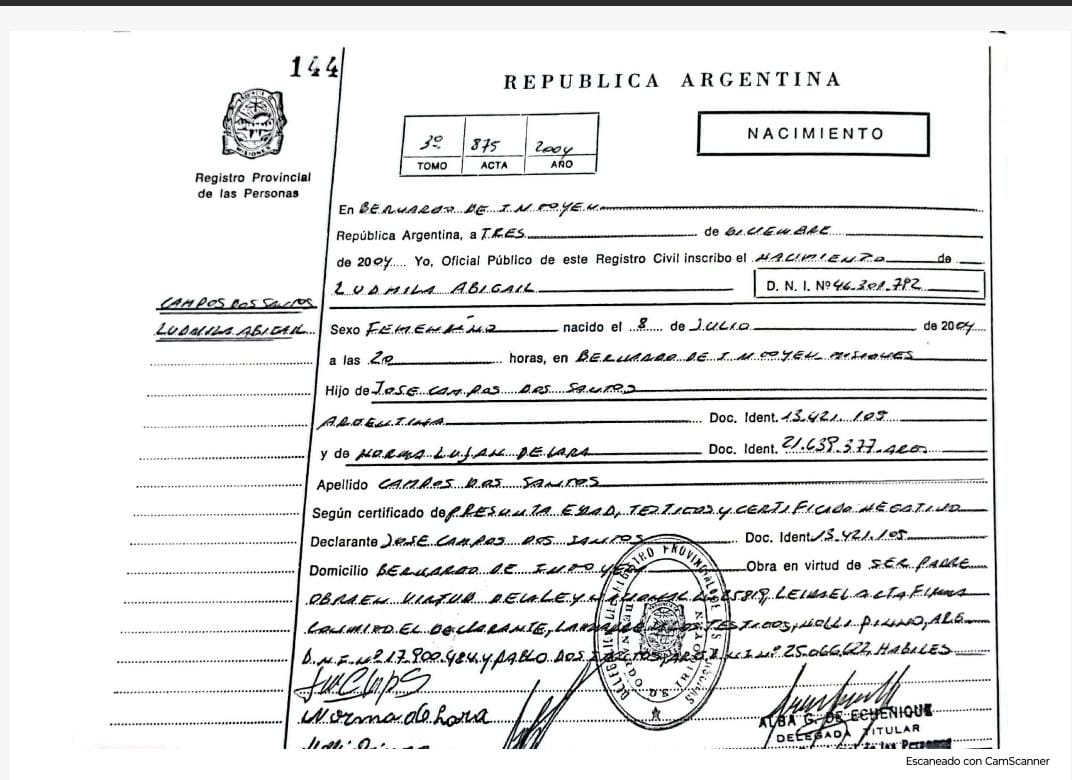 144
REPUBLICA ARGENTINA
3º 875 2004
TOMO ACTA AÑO
NACIMIENTO
MISIONES
Registro Provincial
de las Personas
En BERNARDO DE IRIGOYEN
República Argentina, a TRES de DICIEMBRE
de 2004 Yo, Oficial Público de este Registro Civil inscribo el NACIMIENTO de
LUDMILA ABIGAIL D. N. I. Nº 46.301.792
CAMPOS DOS SANTOS
LUDMILA ABIGAIL
Sexo FEMENINO nacido el 8 de JULIO de 2004
a las 20 horas, en BERNARDO DE IRIGOYEN MISIONES
Hijo de JOSE CAMPOS DOS SANTOS
ARGENTINA Doc. Ident. 13.421.105
y de NORMA LUJAN DE LARA Doc. Ident. 21.639.377 ARG
Apellido CAMPOS DOS SANTOS
Según certificado de PRESUNTA EDAD, TESTIGOS Y CERTIFICADO NEGATIVO
Declarante JOSE CAMPOS DOS SANTOS Doc. Ident 13.421.105
Domicilio BERNARDO DE IRIGOYEN Obra en virtud de SER PADRE
OBRA EN VIRTUD DE LA LEY NACIONAL Nº 25819, LEIDA EL ACTA FIRMA
CONMIGO EL DECLARANTE, LA MADRE Y LOS TESTIGOS, ARG
D.N.I. Nº 17.900.484 Y PABLO DOS SANTOS, ARG D.N.I. Nº 25.066.622, HABILES
Norma de Lara
ALBA G. DE ECHENIQUE
DELEGADA TITULAR
de las Personas
Escaneado con CamScanner